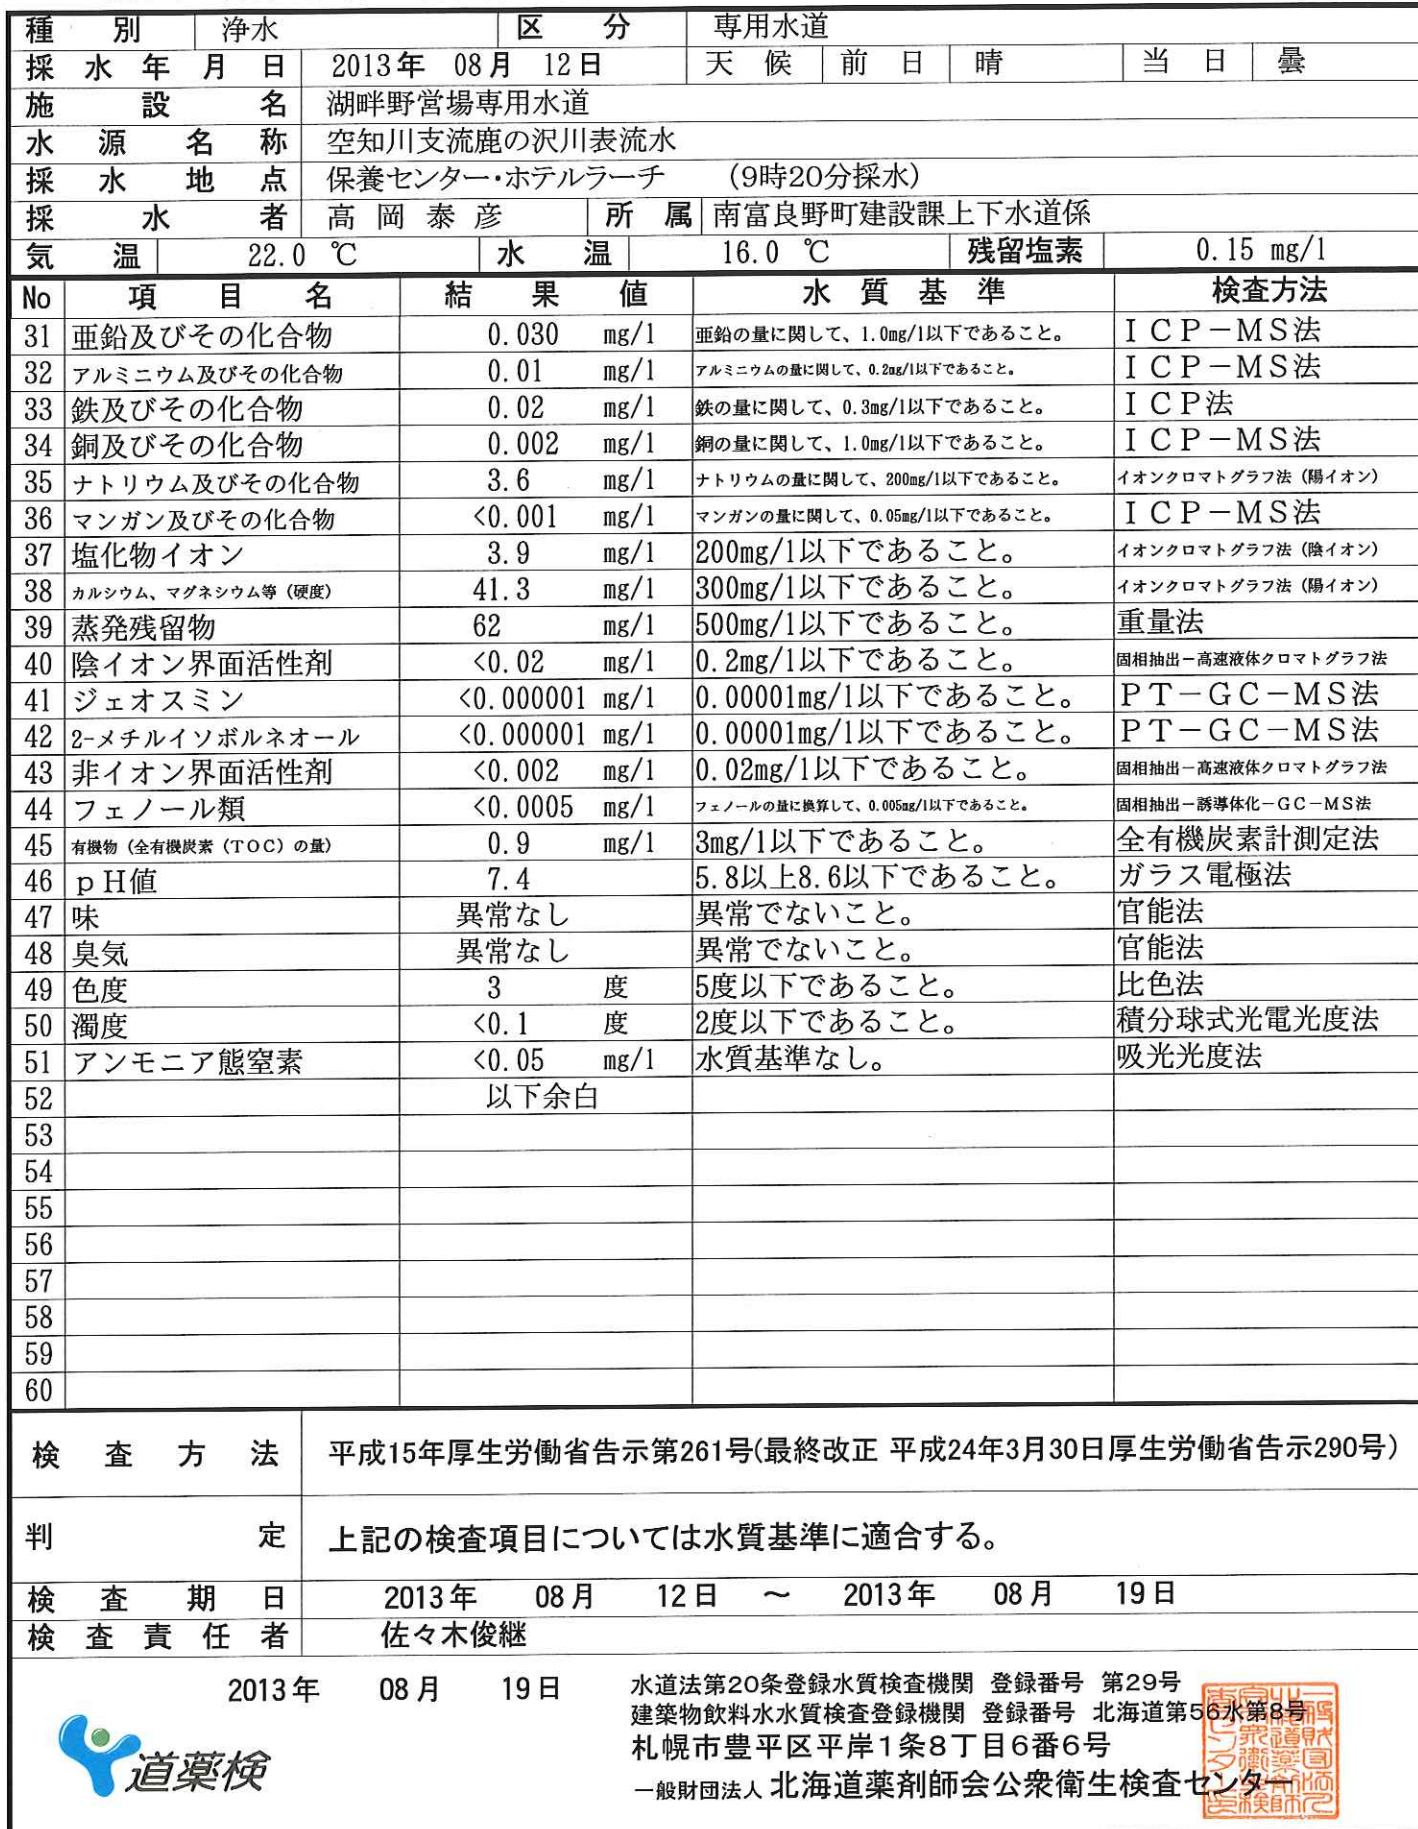 種別 浄水 区分 専用水道
採水年月日 2013年 08月 12日 天候 前日 晴 当日 曇
施設名 湖畔野営場専用水道
水源名称 空知川支流鹿の沢川表流水
採水地点 保養センター・ホテルラーチ (9時20分採水)
採水者 高岡泰彦 所属 南富良野町建設課上下水道係
気温 22.0 ℃ 水温 16.0 ℃ 残留塩素 0.15 mg/l
No 項目名 結果値 水質基準 検査方法
31 亜鉛及びその化合物 0.030 mg/l 亜鉛の量に関して、1.0mg/l以下であること。 ICP－MS法
32 アルミニウム及びその化合物 0.01 mg/l アルミニウムの量に関して、0.2mg/l以下であること。 ICP－MS法
33 鉄及びその化合物 0.02 mg/l 鉄の量に関して、0.3mg/l以下であること。 ICP法
34 銅及びその化合物 0.002 mg/l 銅の量に関して、1.0mg/l以下であること。 ICP－MS法
35 ナトリウム及びその化合物 3.6 mg/l ナトリウムの量に関して、200mg/l以下であること。 イオンクロマトグラフ法（陽イオン）
36 マンガン及びその化合物 <0.001 mg/l マンガンの量に関して、0.05mg/l以下であること。 ICP－MS法
37 塩化物イオン 3.9 mg/l 200mg/l以下であること。 イオンクロマトグラフ法（陰イオン）
38 カルシウム、マグネシウム等（硬度） 41.3 mg/l 300mg/l以下であること。 イオンクロマトグラフ法（陽イオン）
39 蒸発残留物 62 mg/l 500mg/l以下であること。 重量法
40 陰イオン界面活性剤 <0.02 mg/l 0.2mg/l以下であること。 固相抽出－高速液体クロマトグラフ法
41 ジェオスミン <0.000001 mg/l 0.00001mg/l以下であること。 PT－GC－MS法
42 2-メチルイソボルネオール <0.000001 mg/l 0.00001mg/l以下であること。 PT－GC－MS法
43 非イオン界面活性剤 <0.002 mg/l 0.02mg/l以下であること。 固相抽出－高速液体クロマトグラフ法
44 フェノール類 <0.0005 mg/l フェノールの量に換算して、0.005mg/l以下であること。 固相抽出－誘導体化－GC－MS法
45 有機物（全有機炭素（TOC）の量） 0.9 mg/l 3mg/l以下であること。 全有機炭素計測定法
46 pH値 7.4 5.8以上8.6以下であること。 ガラス電極法
47 味 異常なし 異常でないこと。 官能法
48 臭気 異常なし 異常でないこと。 官能法
49 色度 3 度 5度以下であること。 比色法
50 濁度 <0.1 度 2度以下であること。 積分球式光電光度法
51 アンモニア態窒素 <0.05 mg/l 水質基準なし。 吸光光度法
52 以下余白
53
54
55
56
57
58
59
60
検査方法 平成15年厚生労働省告示第261号(最終改正 平成24年3月30日厚生労働省告示290号)
判定 上記の検査項目については水質基準に適合する。
検査期日 2013年 08月 12日 ～ 2013年 08月 19日
検査責任者 佐々木俊継
2013年 08月 19日
水道法第20条登録水質検査機関 登録番号 第29号
建築物飲料水水質検査登録機関 登録番号 北海道第56水第8号
札幌市豊平区平岸1条8丁目6番6号
道薬検
一般財団法人 北海道薬剤師会公衆衛生検査センター